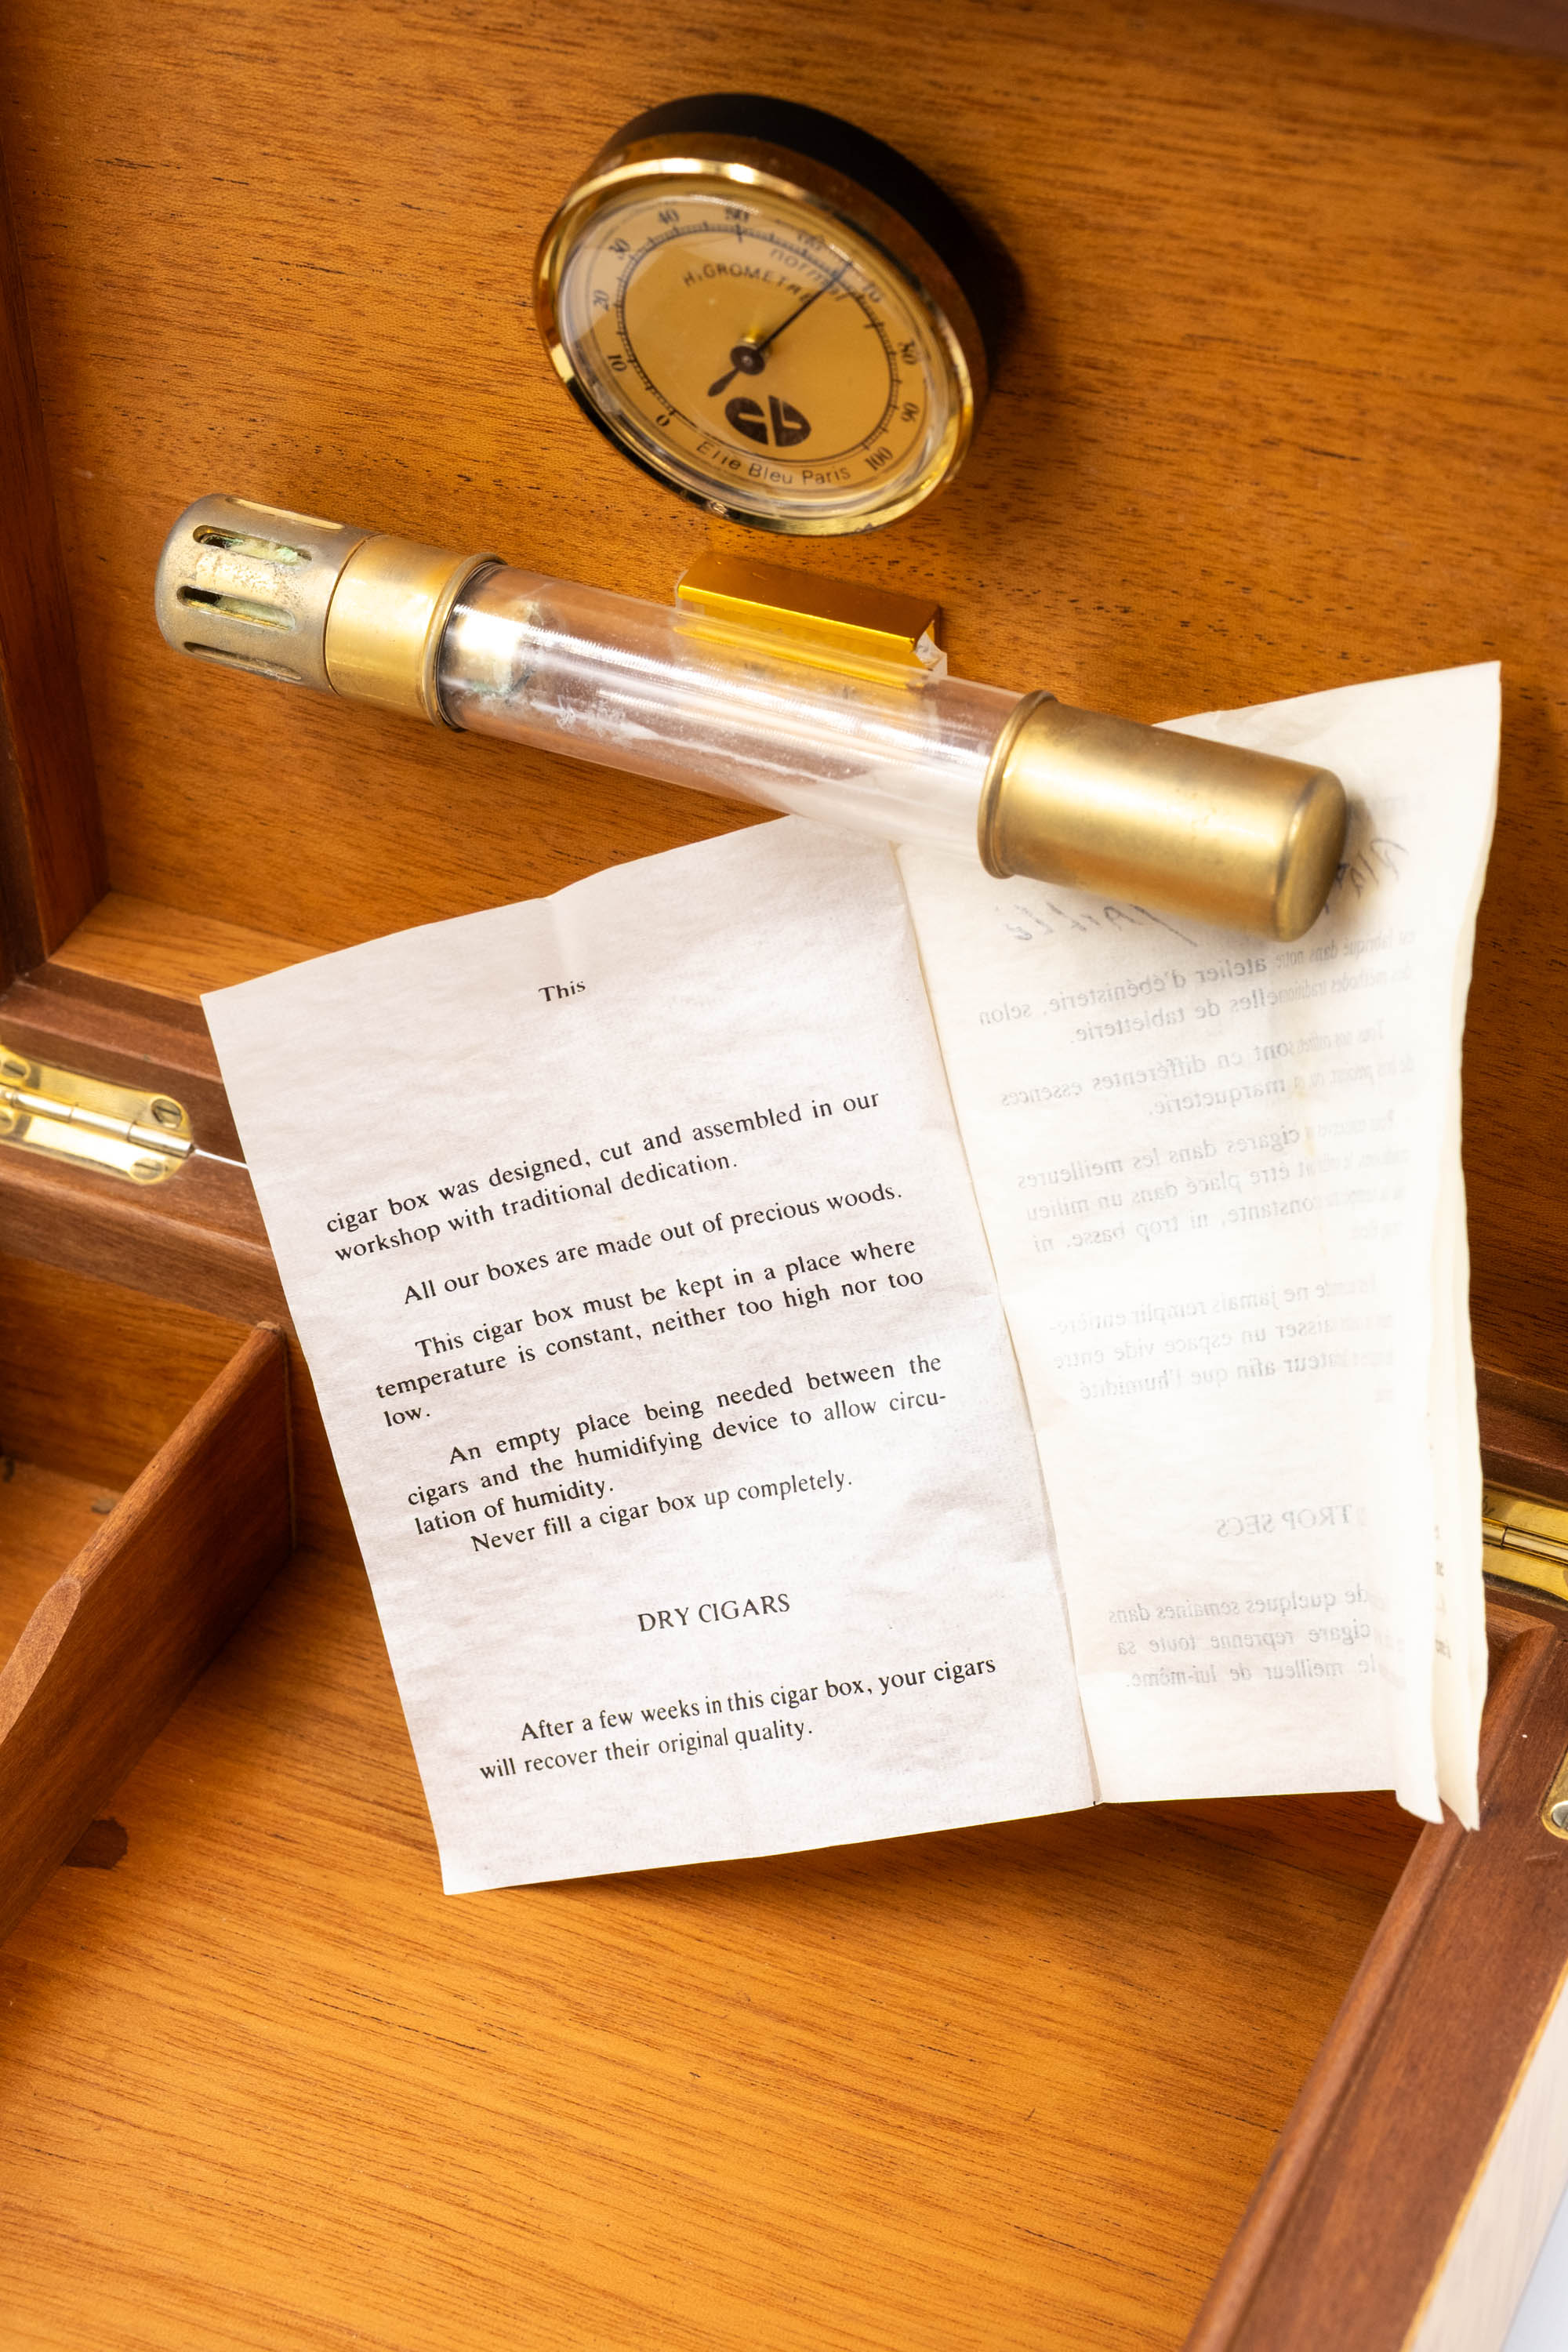 0 10 20 30 40 50 70 80 90 100
normal
HYGROMETRE
Elie Bleu Paris
This
cigar box was designed, cut and assembled in our
workshop with traditional dedication.
All our boxes are made out of precious woods.
This cigar box must be kept in a place where
temperature is constant, neither too high nor too
low.
An empty place being needed between the
cigars and the humidifying device to allow circu-
lation of humidity.
Never fill a cigar box up completely.
DRY CIGARS
After a few weeks in this cigar box, your cigars
will recover their original quality.
atelier d'ébénisterie, selon
de tabletterie.
sont en différentes essences
marqueterie.
cigares dans les meilleures
être placé dans un milieu
constante, ni trop basse, ni
ne jamais remplir entière-
laisser un espace vide entre
afin que l'humidité
TROP SECS
de quelques semaines dans
cigare reprenne toute sa
le meilleur de lui-même.